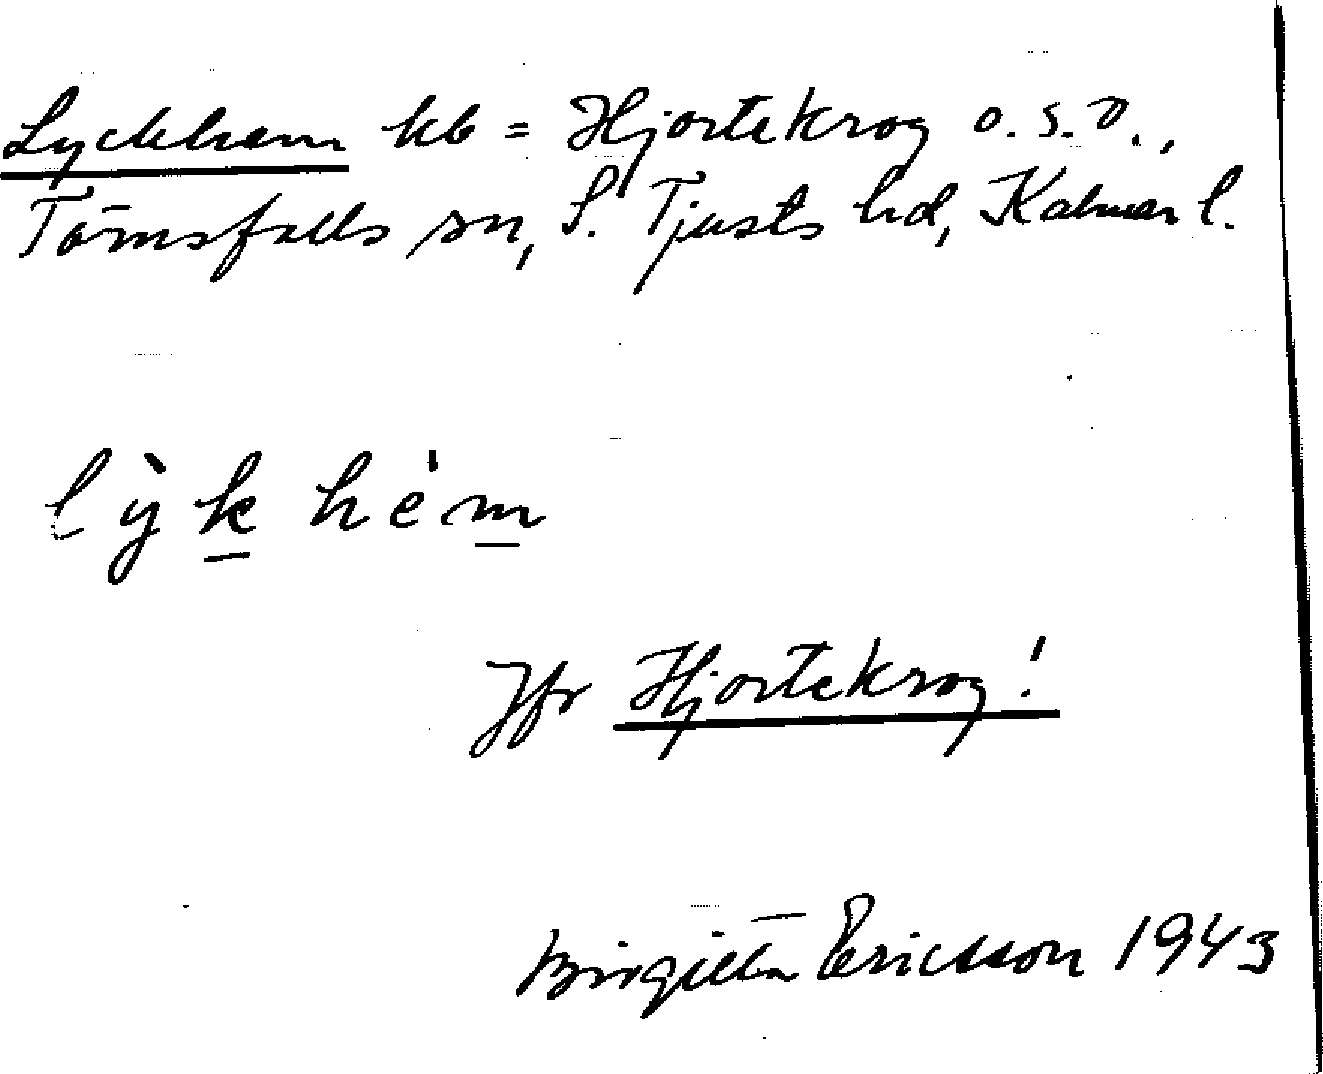 Lyckhem kb = Hjortekrog o.s.v.,
Törnsfalls sn, S. Tjusts hd, Kalmar l.
lỳk hém
Jfr Hjortekrog!
Birgitta Ericsson 1943